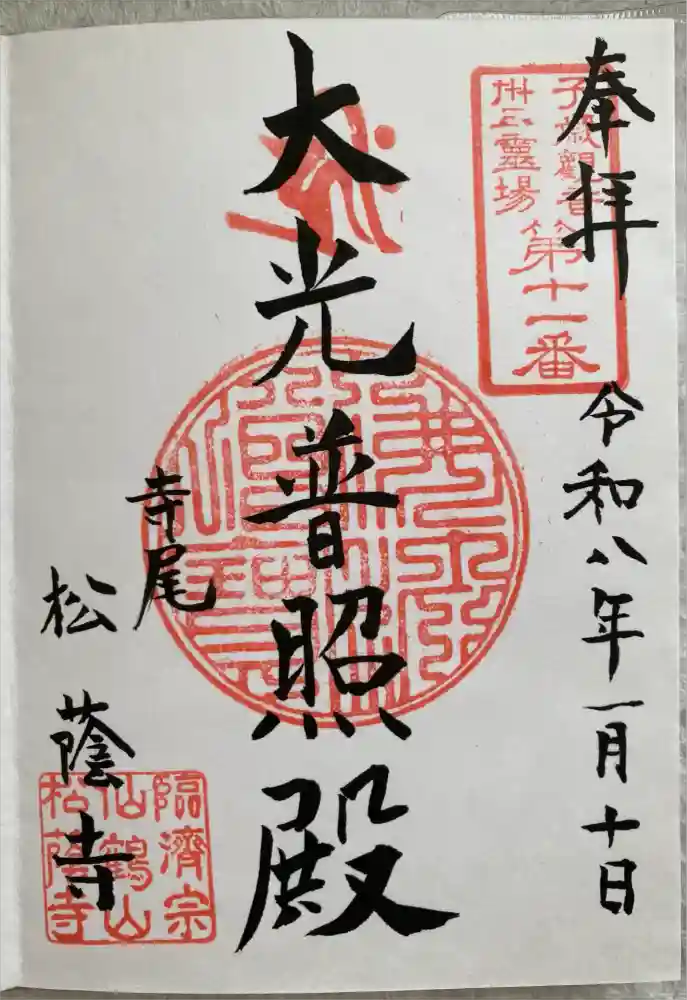 奉拝
令和八年一月十日
子歳観音
卅三霊場
第十一番
大光普照殿
寺尾
松蔭寺
臨済宗
仙鶴山
松蔭寺